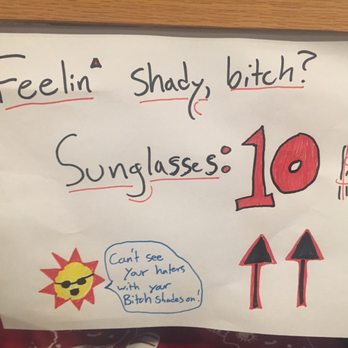 Feelin' shady, bitch?
Sunglasses: 10
Can't see
your haters
with your
Bitch shades on!